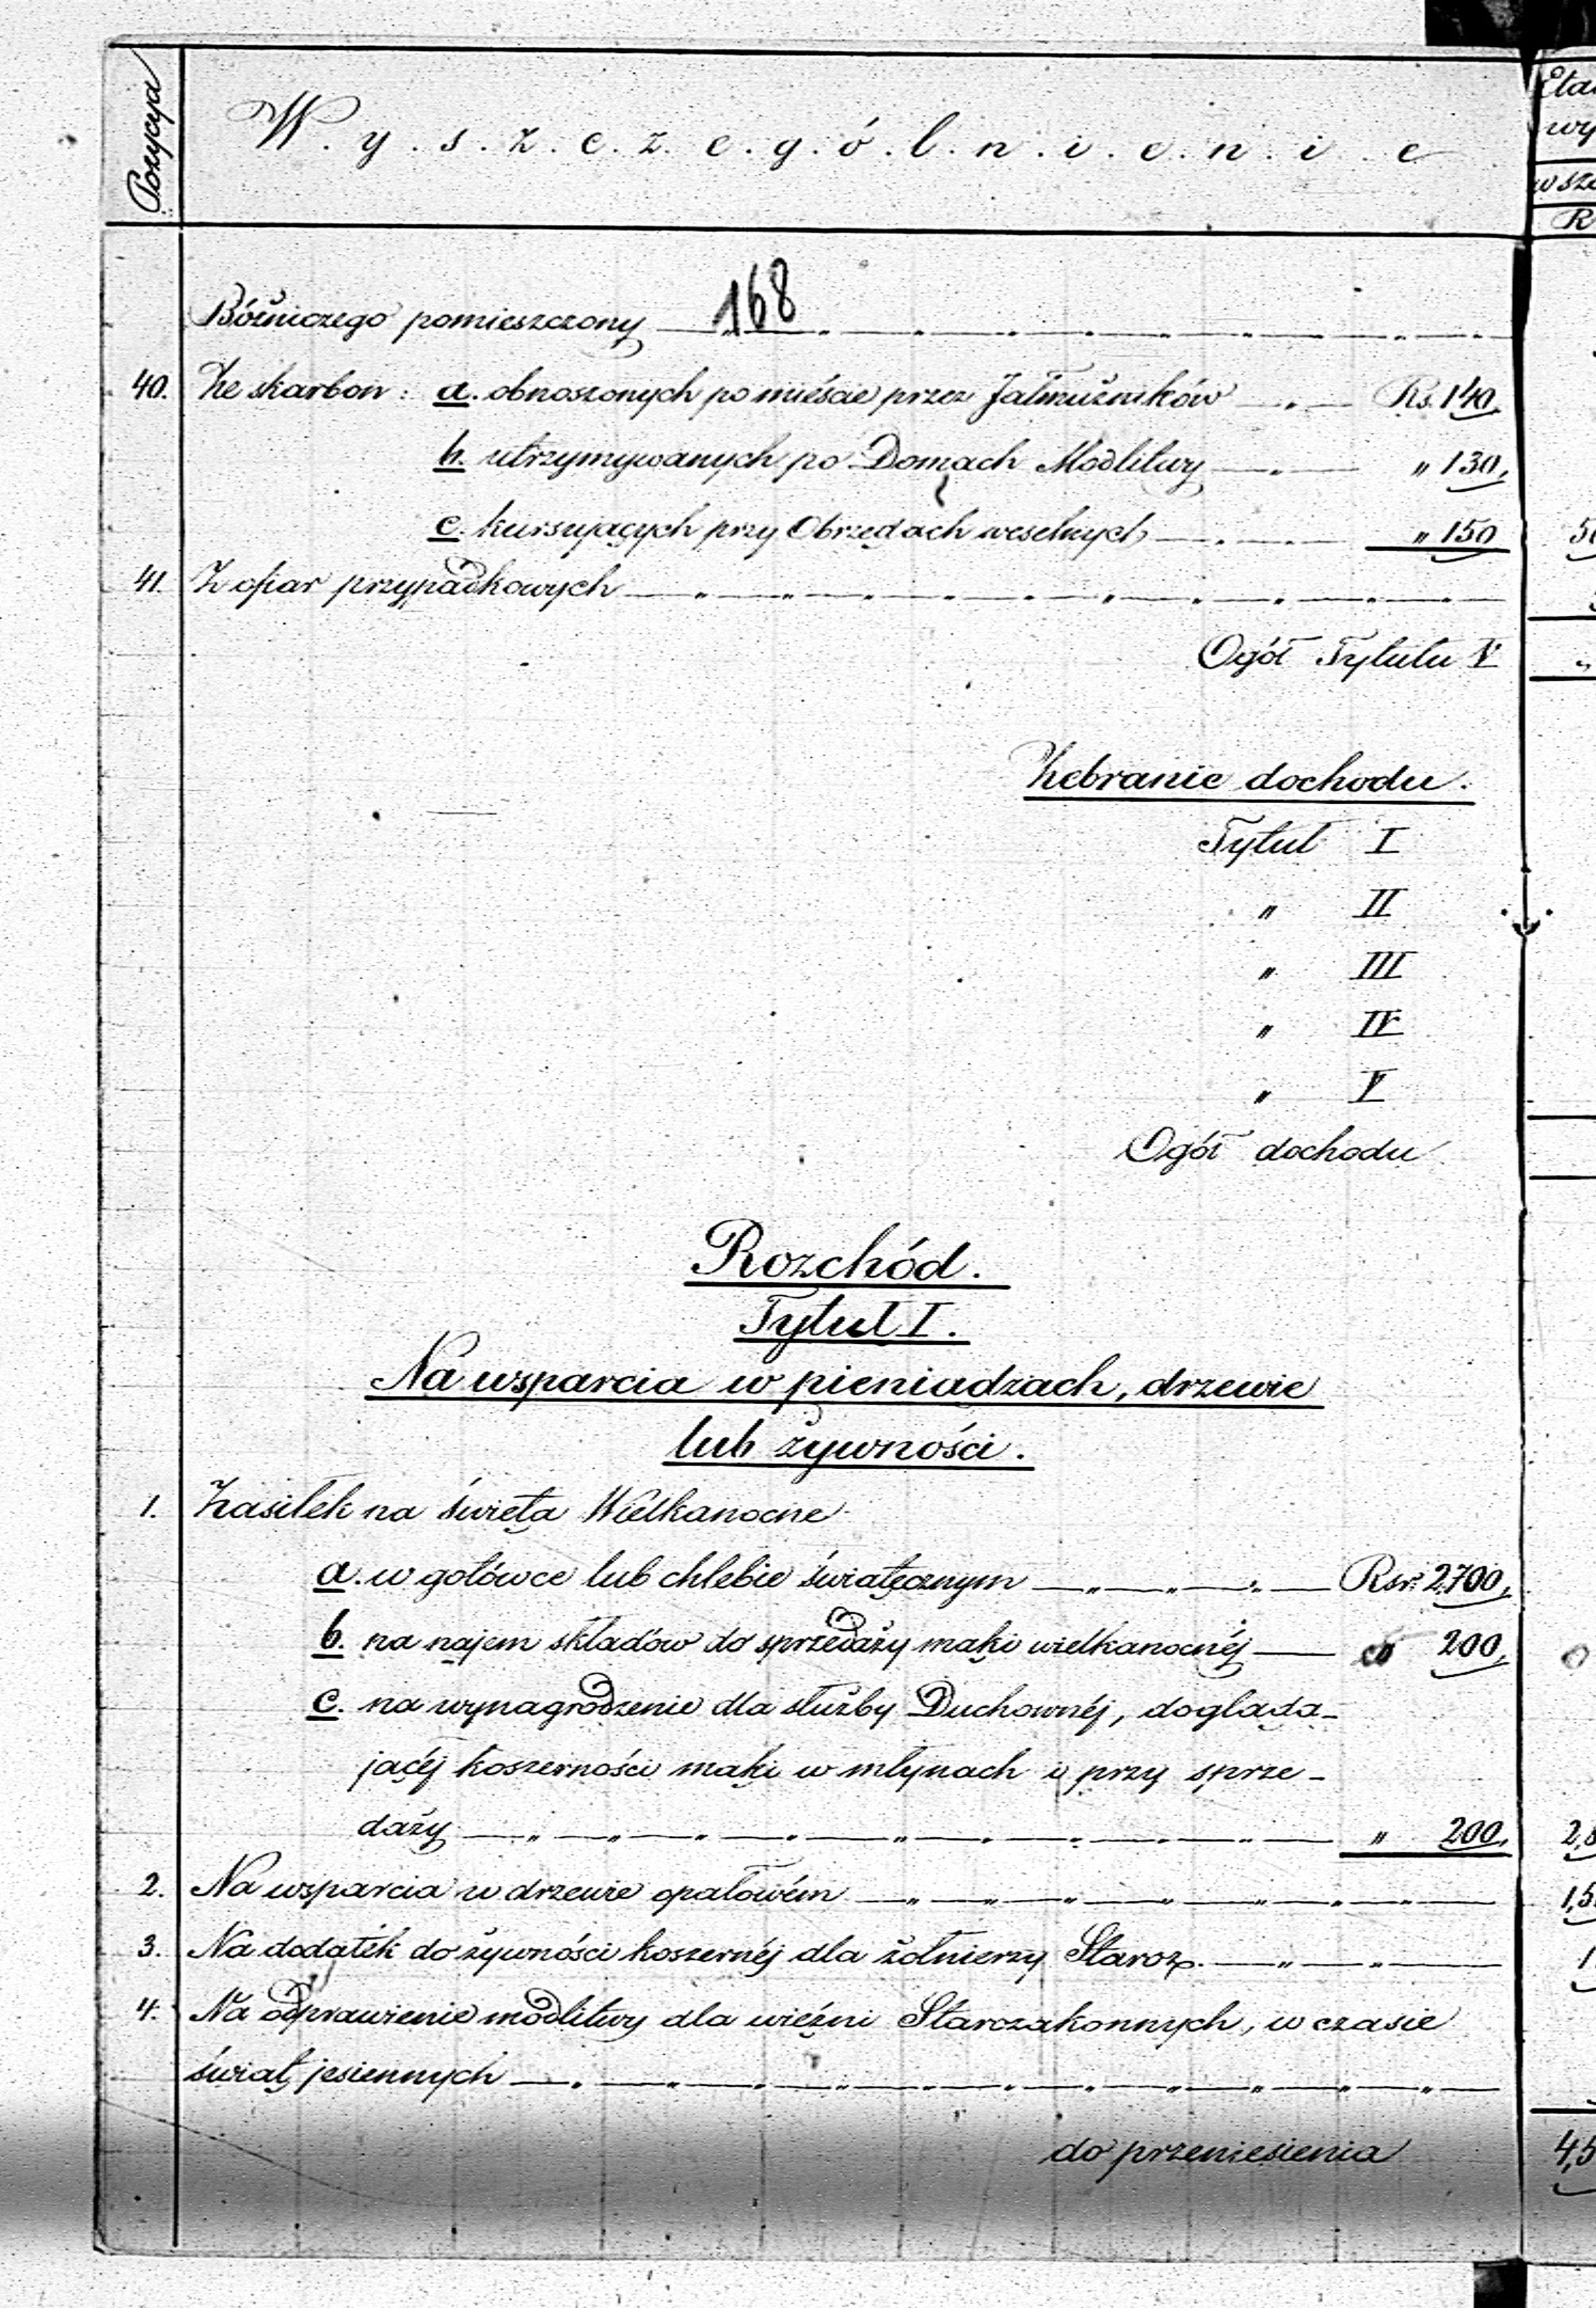 Pozycya
Wyszczególnienie
Eta
wy
w sze
R
168
Bóżniczego pomieszczony
40. Ze skarbon: a. obnoszonych po mieście przez Jałmużników Rs. 140.
b. utrzymywanych po Domach Modlitwy " 130.
c. kursujących przy Obrzędach weselnych " 150
41. Z ofiar przypadkowych
Ogół Tytułu V
Zebranie dochodu.
Tytuł I
" II
" III
" IV
" V
Ogół dochodu
Rozchód.
Tytuł I.
Na wsparcia w pieniądzach, drzewie
lub żywności.
1. Zasiłek na święta Wielkanocne
a. w gotówce lub chlebie świątecznym Rsr. 2700.
b. na najem składów do sprzedaży mąki wielkanocnéj 200.
c. na wynagrodzenie dla służby Duchownéj, dogląda-
jącéj koszerności mąki w młynach i przy sprze-
daży " 200.
2. Na wsparcia w drzewie opałowém 1,5
3. Na dodatek do żywności koszernéj dla żołnierzy Staroz.
4. Na odprawienie modlitwy dla więźni Starozakonnych, w czasie
świąt jesiennych
do przeniesienia 4,5